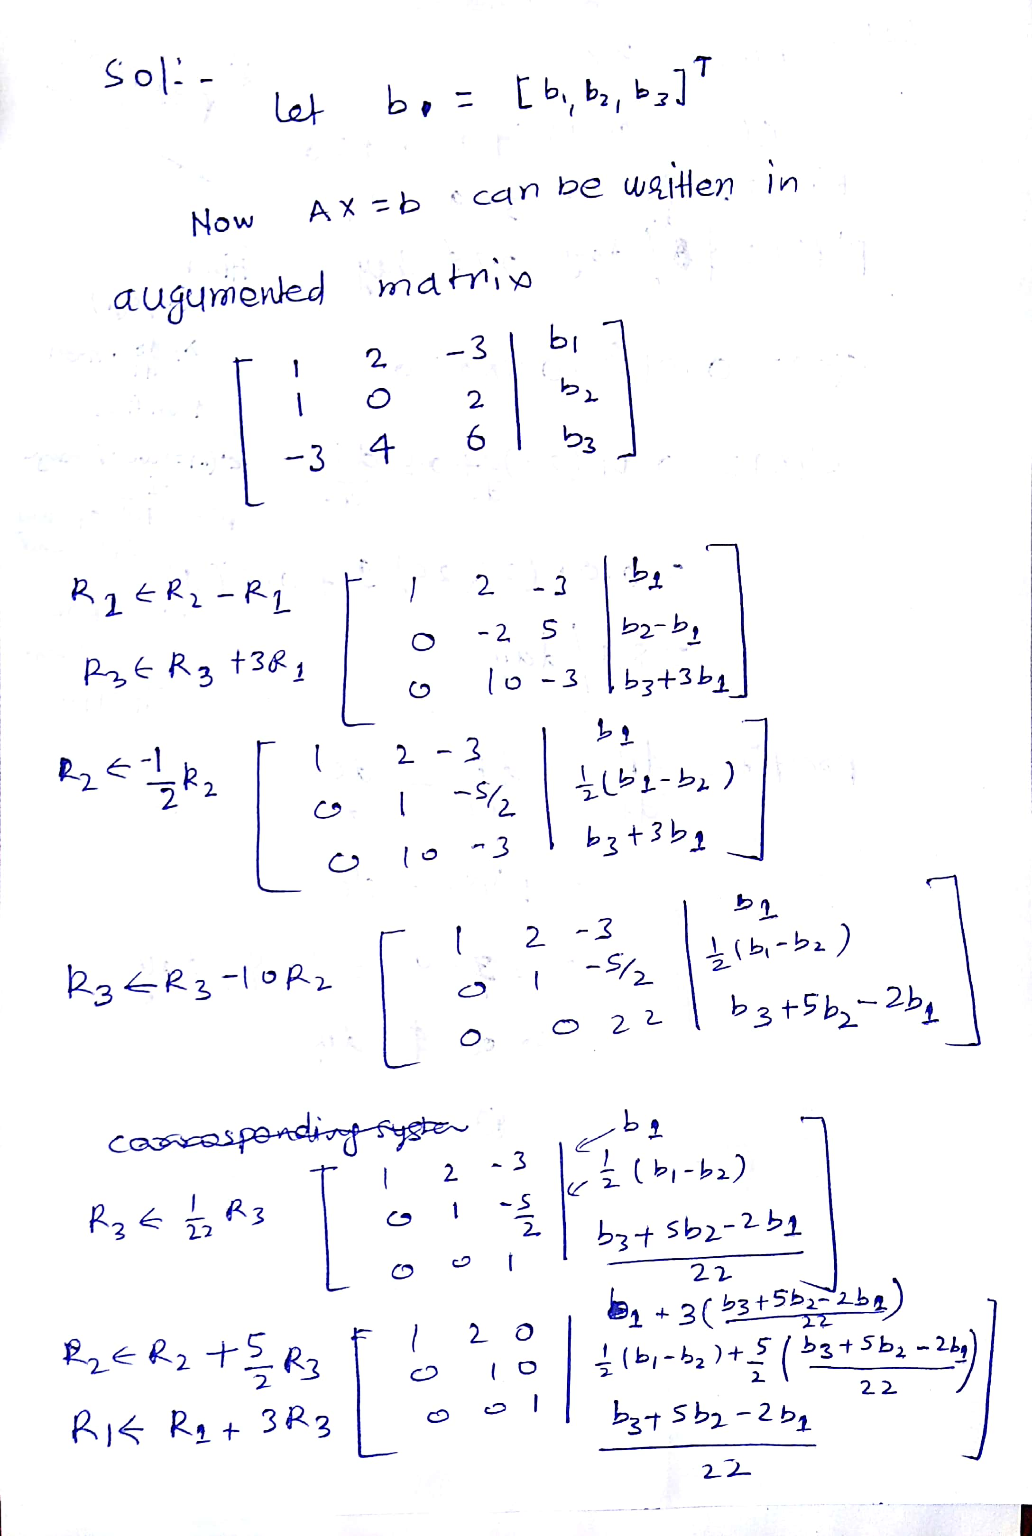 Sol:-
Let b = [b1, b2, b3]^T
Now AX = b can be written in
augumented matrix
[ 1 2 -3 | b1 ]
[ 1 0 2 | b2 ]
[ -3 4 6 | b3 ]
R2 ← R2 - R1
R3 ← R3 + 3R1
[ 1 2 -3 | b1 ]
[ 0 -2 5 | b2-b1 ]
[ 0 10 -3 | b3+3b1 ]
R2 ← -1/2 R2
[ 1 2 -3 | b1 ]
[ 0 1 -5/2 | 1/2(b1-b2) ]
[ 0 10 -3 | b3+3b1 ]
R3 ← R3 - 10R2
[ 1 2 -3 | b1 ]
[ 0 1 -5/2 | 1/2(b1-b2) ]
[ 0 0 22 | b3+5b2-2b1 ]
R3 ← 1/22 R3
[ 1 2 -3 | b1 ]
[ 0 1 -5/2 | 1/2(b1-b2) ]
[ 0 0 1 | (b3+5b2-2b1)/22 ]
R2 ← R2 + 5/2 R3
R1 ← R1 + 3R3
[ 1 2 0 | b1 + 3((b3+5b2-2b1)/22) ]
[ 0 1 0 | 1/2(b1-b2) + 5/2((b3+5b2-2b1)/22) ]
[ 0 0 1 | (b3+5b2-2b1)/22 ]